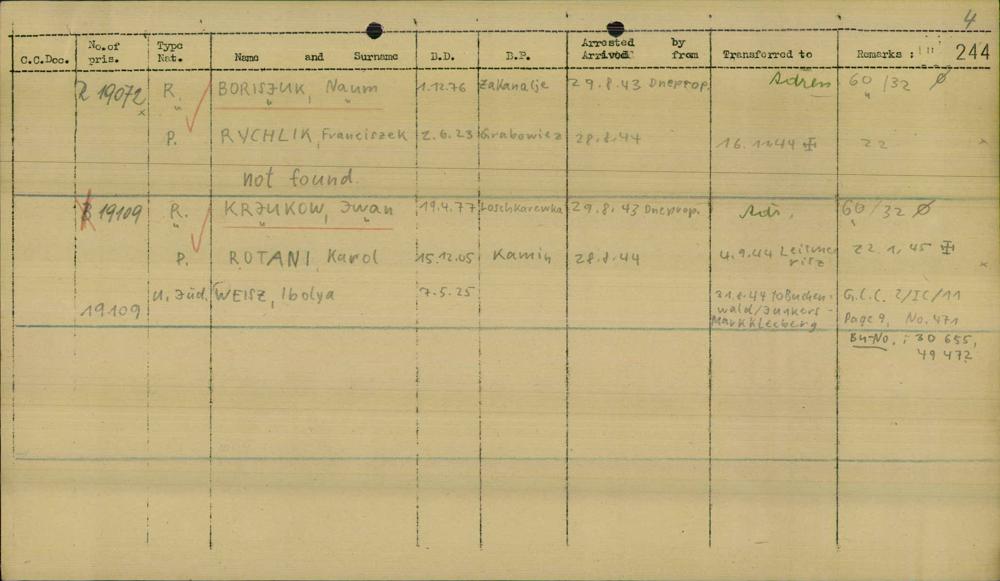 4
C.C.Doc. No.of pris. Type Nat. Name and Surname B.D. B.P. Arrested Arrived by from Transferred to Remarks : 244
19072 R. BORISJUK, Naum 1.12.76 Zakanalje 29.8.43 Dneprop. 60/32 Ø
P. RYCHLIK, Franciszek 2.6.23 Grabowiez 28.8.44 16.1.44 22
not found.
19109 R. KRJUKOW, Iwan 19.4.77 Loschkarewka 29.8.43 Dneprop. Adr. 60/32 Ø
P. ROTANI, Karol 15.12.05 Kamin 28.8.44 4.9.44 Leitmeritz 22.1.45
19109 U. Jüd. WEISZ, Ibolya 7.5.25 31.8.44 to Buchen-
wald/Junkers-
Markkleeberg
G.C.C. 2/IC/11
Page 9, No. 471
Bu-No.: 30 655,
49 472